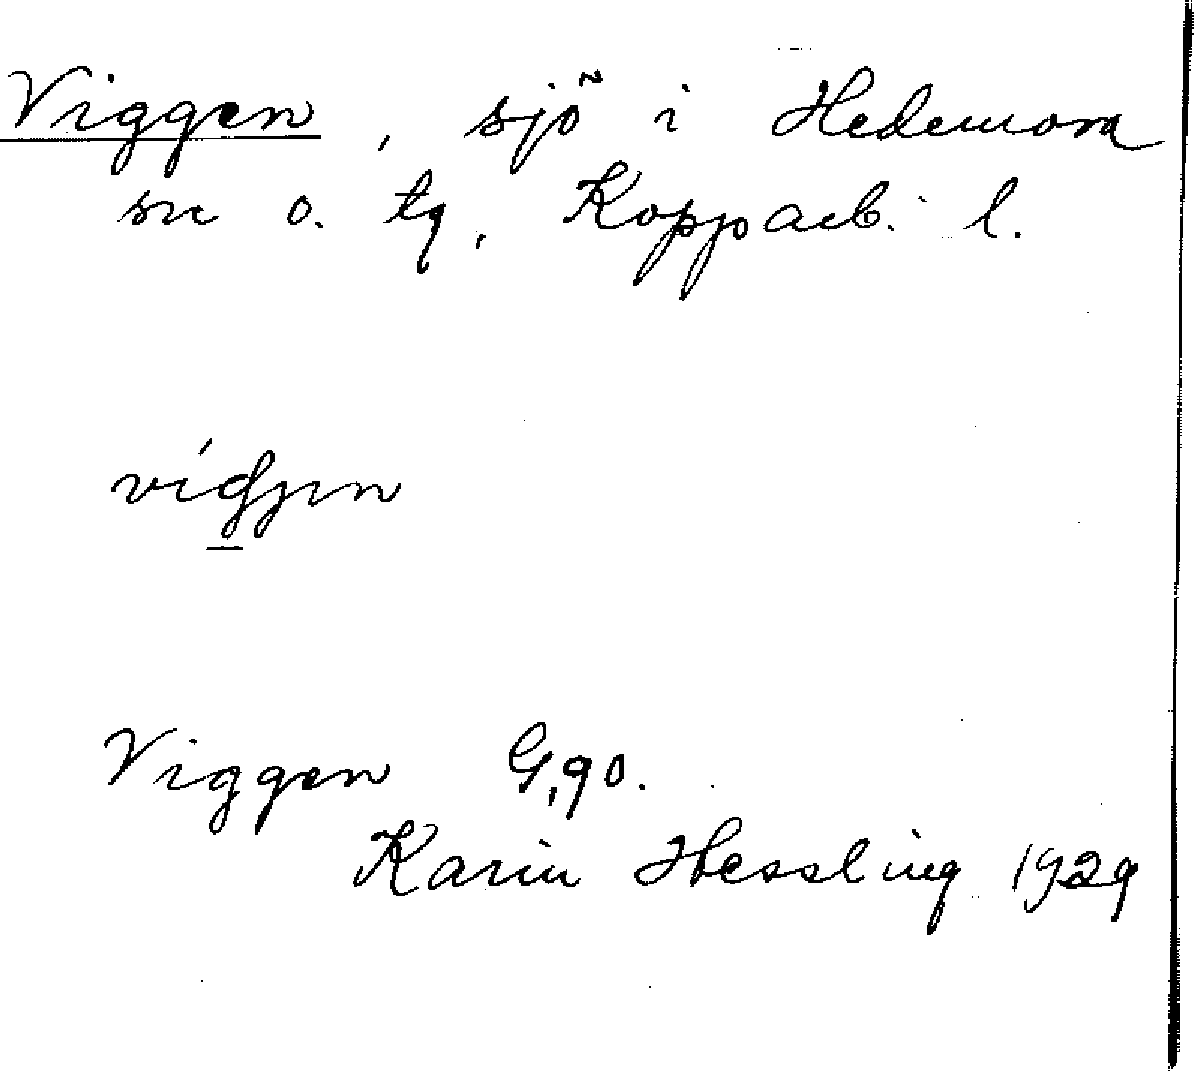 Viggen, sjö i Hedemora
sn o. tg, Kopparb. l.
Viggen G,90.
Karin Hessling 1929